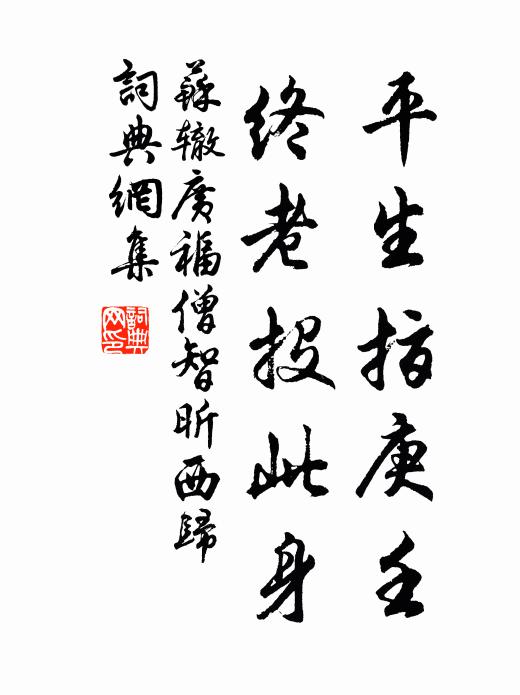 平生指庚壬
终老投此身
蘇辙廣福僧智昕西歸
詞典網集
詞典网印